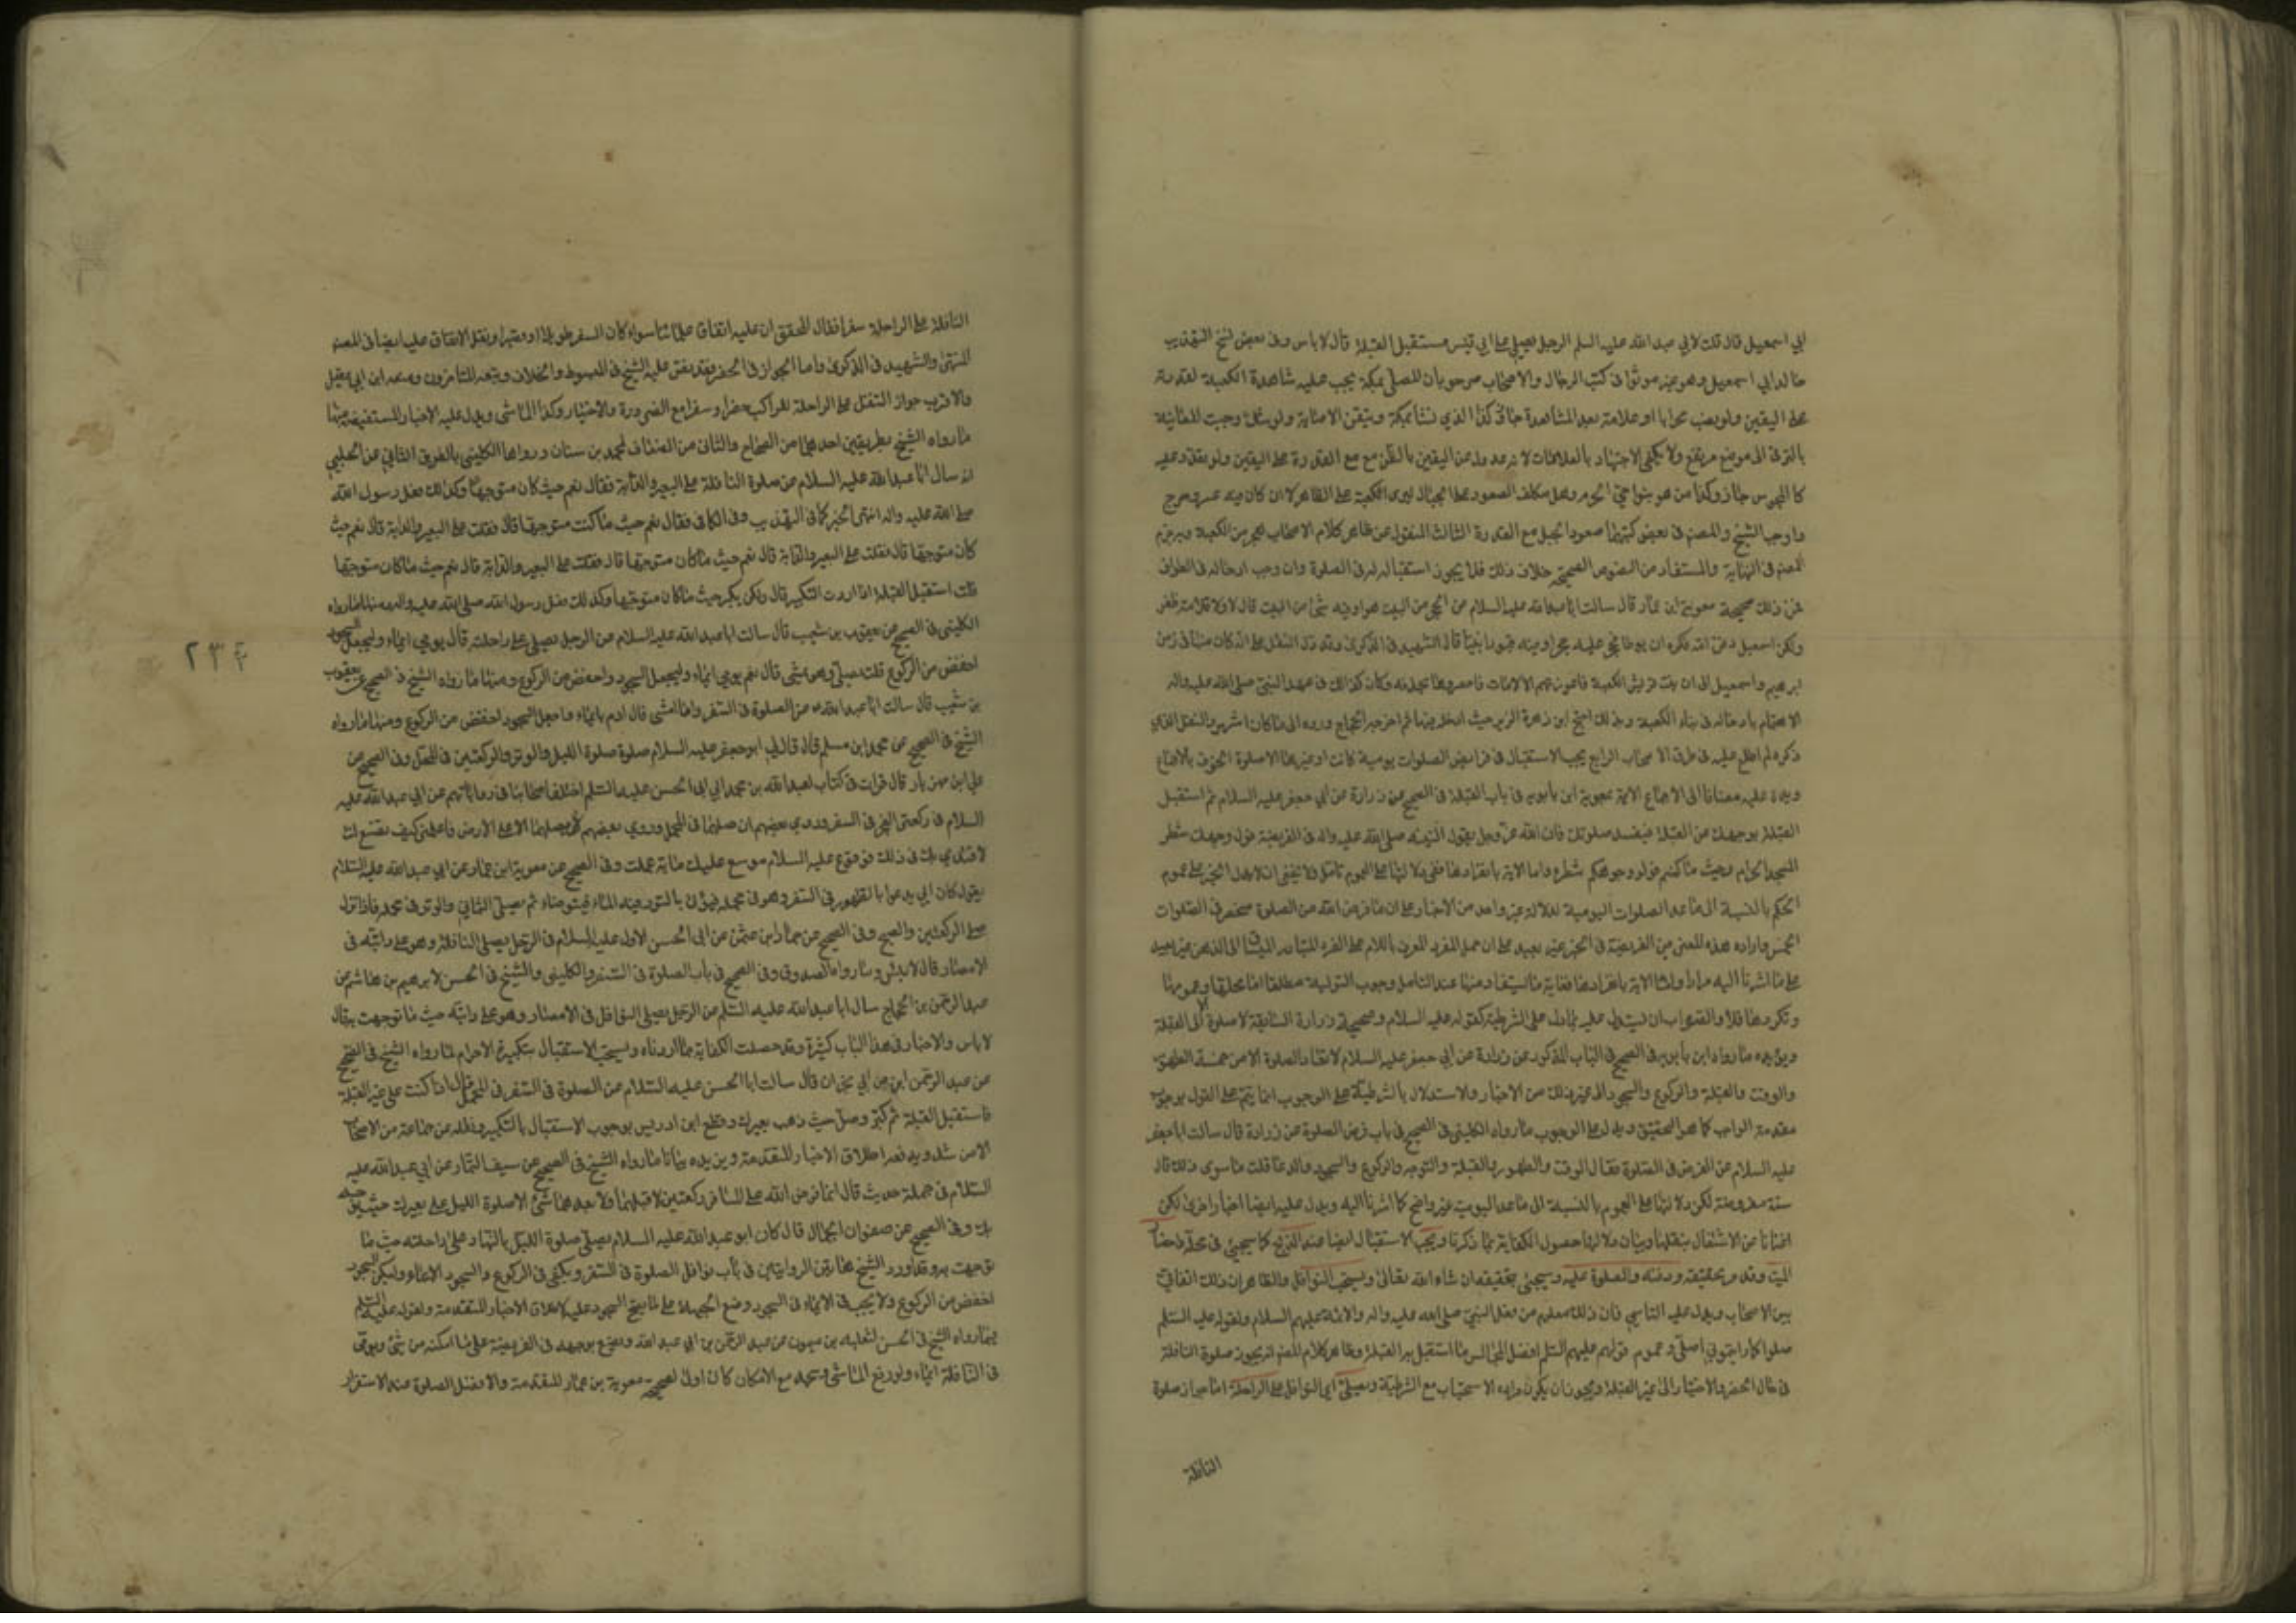 ابي اسمعيل قال قلت لابي عبد الله عليه السلم الرجل يصلي على ابي قبيس مستقبل القبلة قال لا باس وفى بعض نسخ التهذيب
خالد ابي اسمعيل وهو غير موثوا فى كتب الرجال والاصحاب صرحوا بان للمصلى بمكة يجب عليه مشاهدة الكعبة لقدرته
على اليقين ولو نصب محرابا او علامة بعد المشاهدة جاز كذا الذي نشا بمكة وتيقن الاصابة ولو شك وجبت المعاينة
بالترقى الى موضع مرتفع ولا يكفى الاجتهاد بالعلامات لانه عدول عن اليقين بالظن مع القدرة على اليقين ولو
كالمحبوس جاز وكذا من هو بنواحي الحرم وهل يكلف الصعود على الجبال ليرى الكعبة على الظاهر لا ان كان فيه عسر وحرج
واوجب الشيخ والمصنف فى بعض كتبهما صعود الجبل مع القدرة الثالث المنقول عن ظاهر كلام الاصحاب الحجر من الكعبة وبه جزم
المصنف فى النهاية والمستفاد من النصوص الصحيحة خلاف ذلك فلا يجوز استقباله فى الصلوة وان وجب ادخاله فى الطواف
فمن ذلك صحيحة معوية ابن عمار قال سالت ابا عبد الله عليه السلام عن الحجر من البيت هو او فيه شئ من البيت قال لا ولا قلامة ظفر
ولكن اسمعيل دفن امه فكره ان يوطا فحجر عليه حجرا وفيه قبور انبيا قال الشهيد فى الذكرى وقد دل النقل على انه كان منها فى زمن
ابرهيم واسمعيل الى ان بنت قريش الكعبة فاعوزتهم الالات فاختصروها بحذفه وكان كذلك فى عهد النبي صلى الله عليه واله
الاهتمام بادخاله فى بناء الكعبة وبذلك احتج ابن الزبير حيث ادخله فيها ثم اخرجه الحجاج ورده الى ما كان اشهر والنقل الذي
ذكره لم اطلع عليه فى طرق الاصحاب الرابع يجب الاستقبال فى فرايض الصلوات يومية كانت او غيرها الا صلوة الخوف بالاجماع
ويدل عليه مضافا الى الاجماع الاية ابن بابويه فى باب القبلة فى الصحيح عن زرارة عن ابي جعفر عليه السلام ثم استقبل
القبلة بوجهك ولا تقلب وجهك عن القبلة فتفسد صلوتك فان الله عز وجل يقول لنبيه صلى الله عليه واله فى الفريضة فول وجهك شطر
المسجد الحرام وحيث ما كنتم فولوا وجوهكم شطره واما الاية بانفرادها ففى دلالتها على العموم تامل ولا يخفى ان دلالة هذا الخبر على عموم
الحكم بالنسبة الى ما عدا الصلوات اليومية لدلالة غير واحد من الاخبار على ان ما فرض الله من الصلوة منحصر فى الصلوات
الخمس وارادة هذه المعنى من الفريضة فى الخبر غير بعيد على ان حمل المفرد المعرف باللام على الفرد المتبادر الى الذهن غير بعيد
على ما اشرنا اليه مرارا واما الاية بانفرادها فغاية ما يستفاد منها عند التامل وجوب التولية مطلقا اما محلها وعمومها
وتكررها فلا والصواب ان يستدل عليه بما دل على الشرطية كقوله عليه السلام فى صحيحة زرارة السابقة لا صلوة الا الى القبلة
ويؤيده ما رواه ابن بابويه فى الصحيح فى الباب المذكور عن زرارة عن ابي جعفر عليه السلام لا تعاد الصلوة الا من خمسة الطهور
والوقت والقبلة والركوع والسجود الى غير ذلك من الاخبار والاستدلال بالشرطية على الوجوب انما يتم على القول بوجوب
مقدمة الواجب كما هو التحقيق ويدل على الوجوب ما رواه الكليني فى الصحيح فى باب فرض الصلوة عن زرارة قال سالت ابا جعفر
عليه السلام عن الفرض فى الصلوة فقال الوقت والطهور والقبلة والتوجه والركوع والسجود والدعا قلت ما سوى ذلك قال
سنة مفروضة لكن دلالتها على العموم بالنسبة الى ما عدا اليومية غير واضح كما اشرنا اليه ويدل عليه ايضا اخبار اخرى لكن
اغنانا من الاشتغال بنقلها وبيان دلالتها حصول الكفاية بما ذكرنا ويجب الاستقبال ايضا عند الذبح كما سيجيئ فى محله واحتضار
الميت وقد مر تحقيقه ودفنه والصلوة عليه وسيجيئ تحقيقه ان شاء الله تعالى ويستحب النوافل والظاهر ان ذلك اتفاقي
بين الاصحاب ويدل عليه التاسي فان ذلك معلوم من فعل النبي صلى الله عليه واله والائمة عليهم السلام ولقوله عليه السلم
صلوا كما رايتموني اصلي وعموم قولهم عليهم السلم افضل المجالس ما استقبل به القبلة وظاهر كلام المصنف انه يجوز صلوة النافلة
فى حال الحضر والاختيار الى غير القبلة ويجوز ان يكون مراده الاستحباب مع الشرطية ويصلى اي النوافل على الراحلة اما جواز صلوة
النافلة
٢٣٤
النافلة على الراحلة سفرا فقال المحقق ان عليه اتفاق علمائنا سواء كان السفر طويلا او قصيرا ونقل الاتفاق عليه ايضا فى المعتبر
المنتهى والشهيد فى الذكرى واما الجواز فى الحضر فقد نص عليه الشيخ فى المبسوط والخلاف وتبعه المتاخرون ومنعه ابن ابي عقيل
والاقرب جواز التنفل على الراحلة للراكب حضرا وسفرا مع الضرورة والاختيار وكذا الماشى ويدل عليه الاخبار المستفيضة منها
ما رواه الشيخ بطريقين احدهما من الصحاح والثانى من الضعاف لمحمد بن سنان ورواها الكلينى بالطريق الثانى عن الحلبي
انه سال ابا عبد الله عليه السلام عن صلوة النافلة على البعير والدابة فقال نعم حيث كان متوجها وكذلك فعل رسول الله
صلى الله عليه واله انتهى الخبر كما فى التهذيب وفى الكافى فقال نعم حيث ما كنت متوجها قال فقلت على البعير والدابة قال نعم حيث
كان متوجها قال فقلت على البعير والدابة قال نعم حيث ما كان متوجها قال فقلت على البعير والدابة قال نعم حيث ما كان متوجها
قلت استقبل القبلة اذا اردت التكبير قال ولكن يكبر حيث ما كان متوجها وكذلك فعل رسول الله صلى الله عليه واله ومنها ما رواه
الكلينى فى الصحيح عن يعقوب بن شعيب قال سالت ابا عبد الله عليه السلام عن الرجل يصلي على راحلته قال يومي ايماء وليجعل السجود
اخفض من الركوع قلت يصلى وهو يمشى قال نعم يومي ايماء وليجعل السجود اخفض من الركوع ومنها ما رواه الشيخ فى الصحيح عن يعقوب
بن شعيب قال سالت ابا عبد الله عن الصلوة فى السفر وانا امشى قال اوم بايماء واجعل السجود اخفض من الركوع ومنها ما رواه
الشيخ فى الصحيح عن محمد ابن مسلم قال قال لي ابو جعفر عليه السلام صلوة صلوة الليل والوتر والركعتين فى المحمل وفى الصحيح عن
علي ابن مهزيار قال قرات فى كتاب لعبد الله بن محمد الى ابي الحسن عليه السلم اختلف اصحابنا فى رواياتهم عن ابي عبد الله عليه
السلام فى ركعتى الفجر فى السفر فروى بعضهم ان صلهما فى المحمل وروى بعضهم لا تصلهما الا على الارض فاعلمنى كيف تصنع انت
لاقتدي بك فى ذلك فوقع عليه السلام موسع عليك باية عملت وفى الصحيح عن معوية ابن عمار عن ابي عبد الله عليه السلام
يقول كان ابي يدعوا بالطهور فى السفر وهو فى محمله فيؤتى بالتور فيه الماء فيتوضاء ثم يصلى الثماني والوتر فى محمله فاذا نزل
صلى الركعتين والصبح وفى الصحيح عن حماد ابن عثمن عن ابي الحسن الاول عليه السلام فى الرجل يصلى النافلة وهو على دابته فى
الامصار قال لا باس وما رواه الصدوق وفى الصحيح فى باب الصلوة فى السفر والكلينى والشيخ فى الحسن لابرهيم بن هاشم عن
عبد الرحمن بن الحجاج سال ابا عبد الله عليه السلم عن الرجل يصلى النوافل فى الامصار وهو على دابته حيث ما توجهت به قال
لا باس والاخبار فى هذا الباب كثيرة وقد حصلت الكفاية بما اوردناه ويستحب الاستقبال بتكبيرة الاحرام لما رواه الشيخ فى الصحيح
عن عبد الرحمن ابن ابي نجران قال سالت ابا الحسن عليه السلام عن الصلوة فى السفر فى المحمل قال اذا كنت على غير القبلة
فاستقبل القبلة ثم كبر وصل حيث ذهب بعيرك وقطع ابن ادريس بوجوب الاستقبال بالتكبير ونقله عن جماعة من الاصحاب
الا من شذ ويدفعه اطلاق الاخبار المتقدمة ويزيده بيانا ما رواه الشيخ فى الصحيح عن سيف التمار عن ابي عبد الله عليه
السلام فى جملة حديث قال انما فرض الله على المسافر ركعتين لا قبلهما ولا بعدهما شئ الا صلوة الليل على بعيرك حيث توجه
بك وفى الصحيح عن صفوان الجمال قال كان ابو عبد الله عليه السلام يصلى صلوة الليل بالنهار على راحلته حيث ما
توجهت به وقد اورد الشيخ هاتين الروايتين فى باب نوافل الصلوة فى السفر ويكفى فى الركوع والسجود الايماء وليكن السجود
اخفض من الركوع ولا يجب فى الايماء فى السجود وضع الجبهة على ما يصح السجود عليه لاطلاق الاخبار المتقدمة ولقوله عليه السلم
فيما رواه الشيخ فى الحسن لثعلبه بن ميمون عن عبد الرحمن بن ابي عبد الله ويضع بوجهه فى الفريضة على ما امكنه من شئ ويومى
فى النافلة ايماء ولو ركع الماشى وسجد مع الامكان كان اولى لصحيحة معوية بن عمار المتقدمة والافضل الصلوة عند الاستقرار